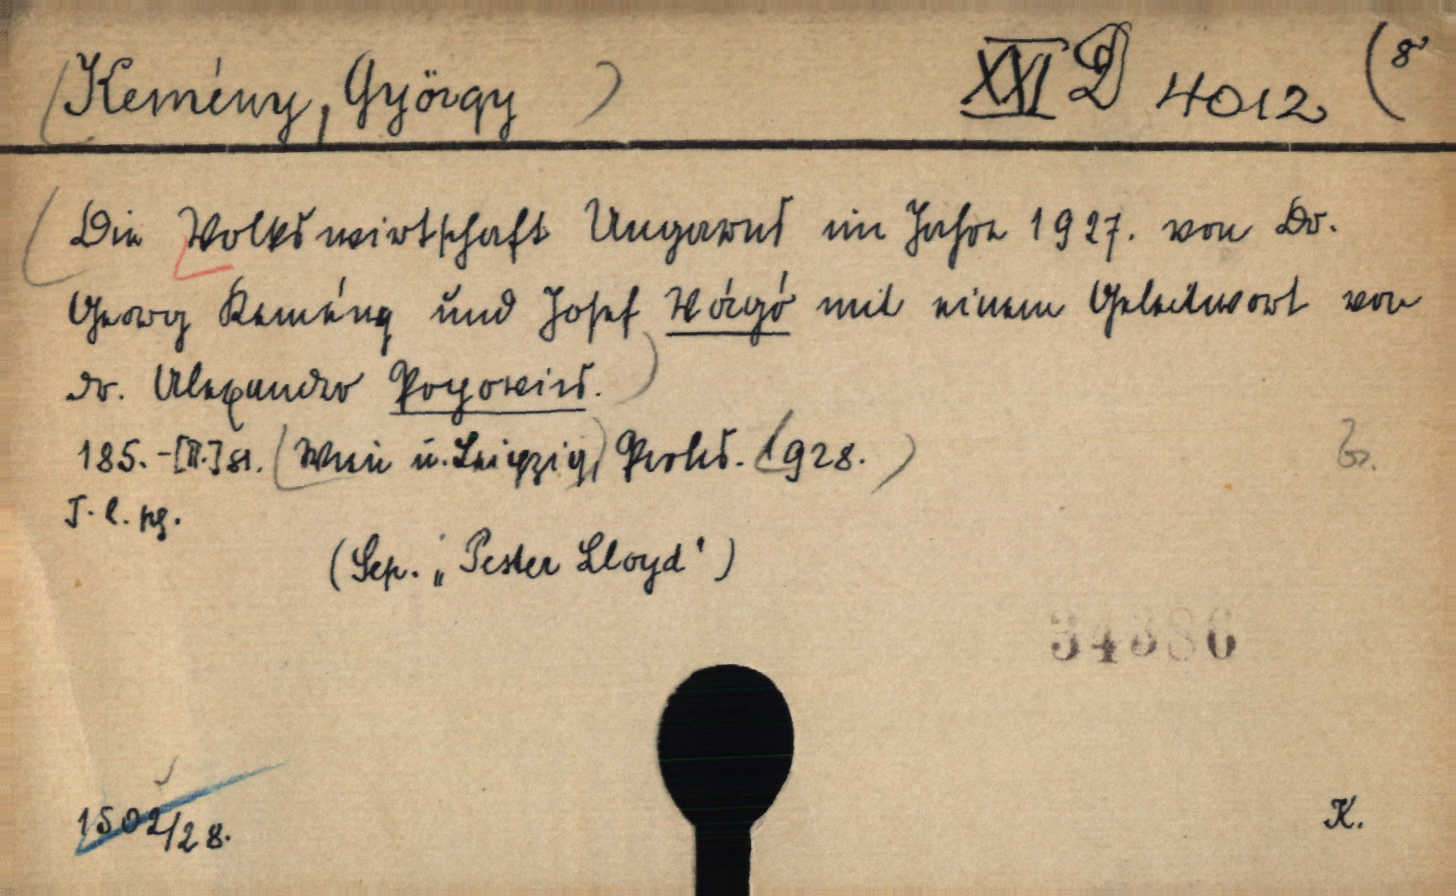 (Kemény, György) XXI D 4012 (8°
(Die Volkswirtschaft Ungarns im Jahre 1927. von Dr.
Georg Kemény und Josef Vágó mit einem Geleitwort von
dr. Alexander Popovics.)
185.-[II.] sl. (Wien u. Leipzig,) Perles. (1928.)
T. l. pg.
(Sep. „Pester Lloyd")
34386
1502/28.
K.